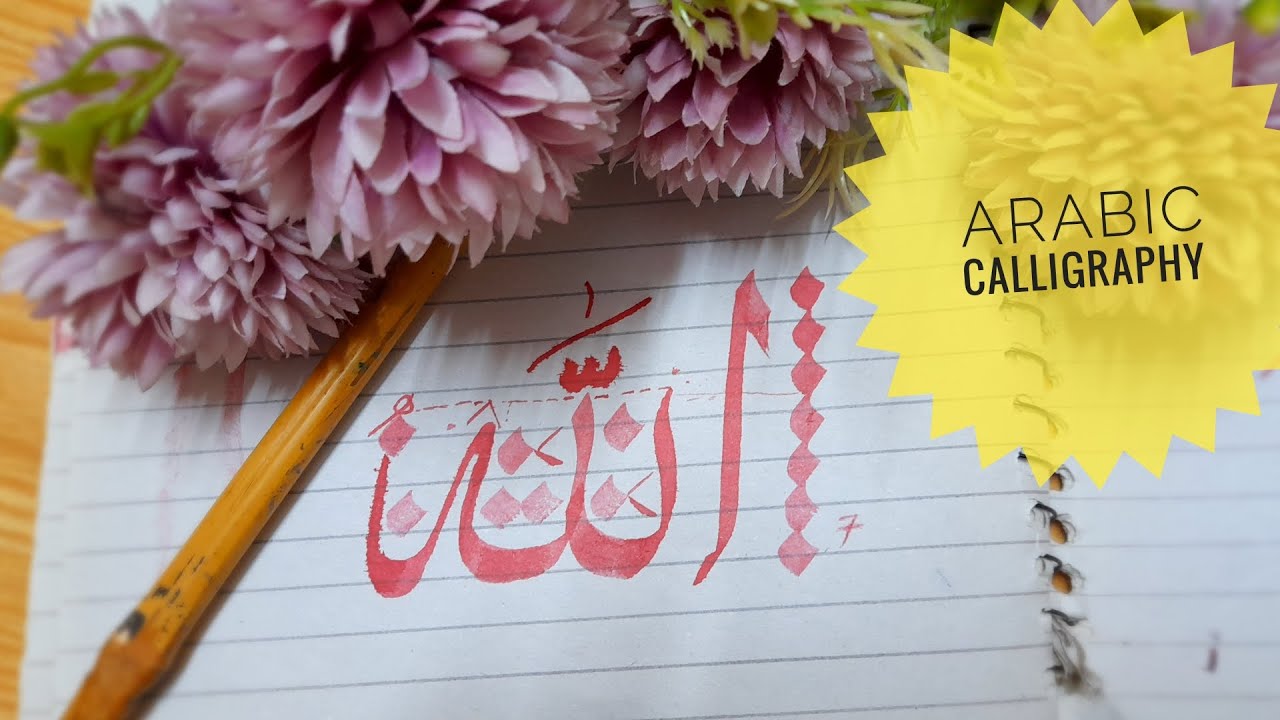 ARABIC
CALLIGRAPHY
اللّٰه
7